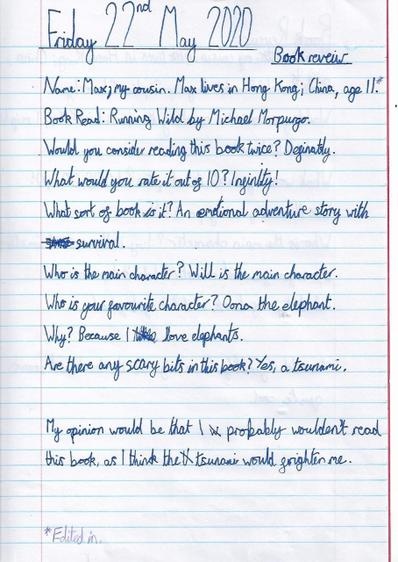 Friday 22nd May 2020
Book reveiw
Name: Max, my cousin. Max lives in Hong Kong; China, age 11.*
Book Read: Running Wild by Michael Morpurgo.
Would you consider reading this book twice? Definatly.
What would you rate it out of 10? Infinity!
What sort of book is it? An emotional adventure story with
survival.
Who is the main character? Will is the main character.
Who is your favourite character? Oona the elephant.
Why? Because I love elephants.
Are there any scary bits in this book? Yes, a tsunami.
My opinion would be that I probably wouldn't read
this book, as I think the tsunami would frighten me.
*Edited in.